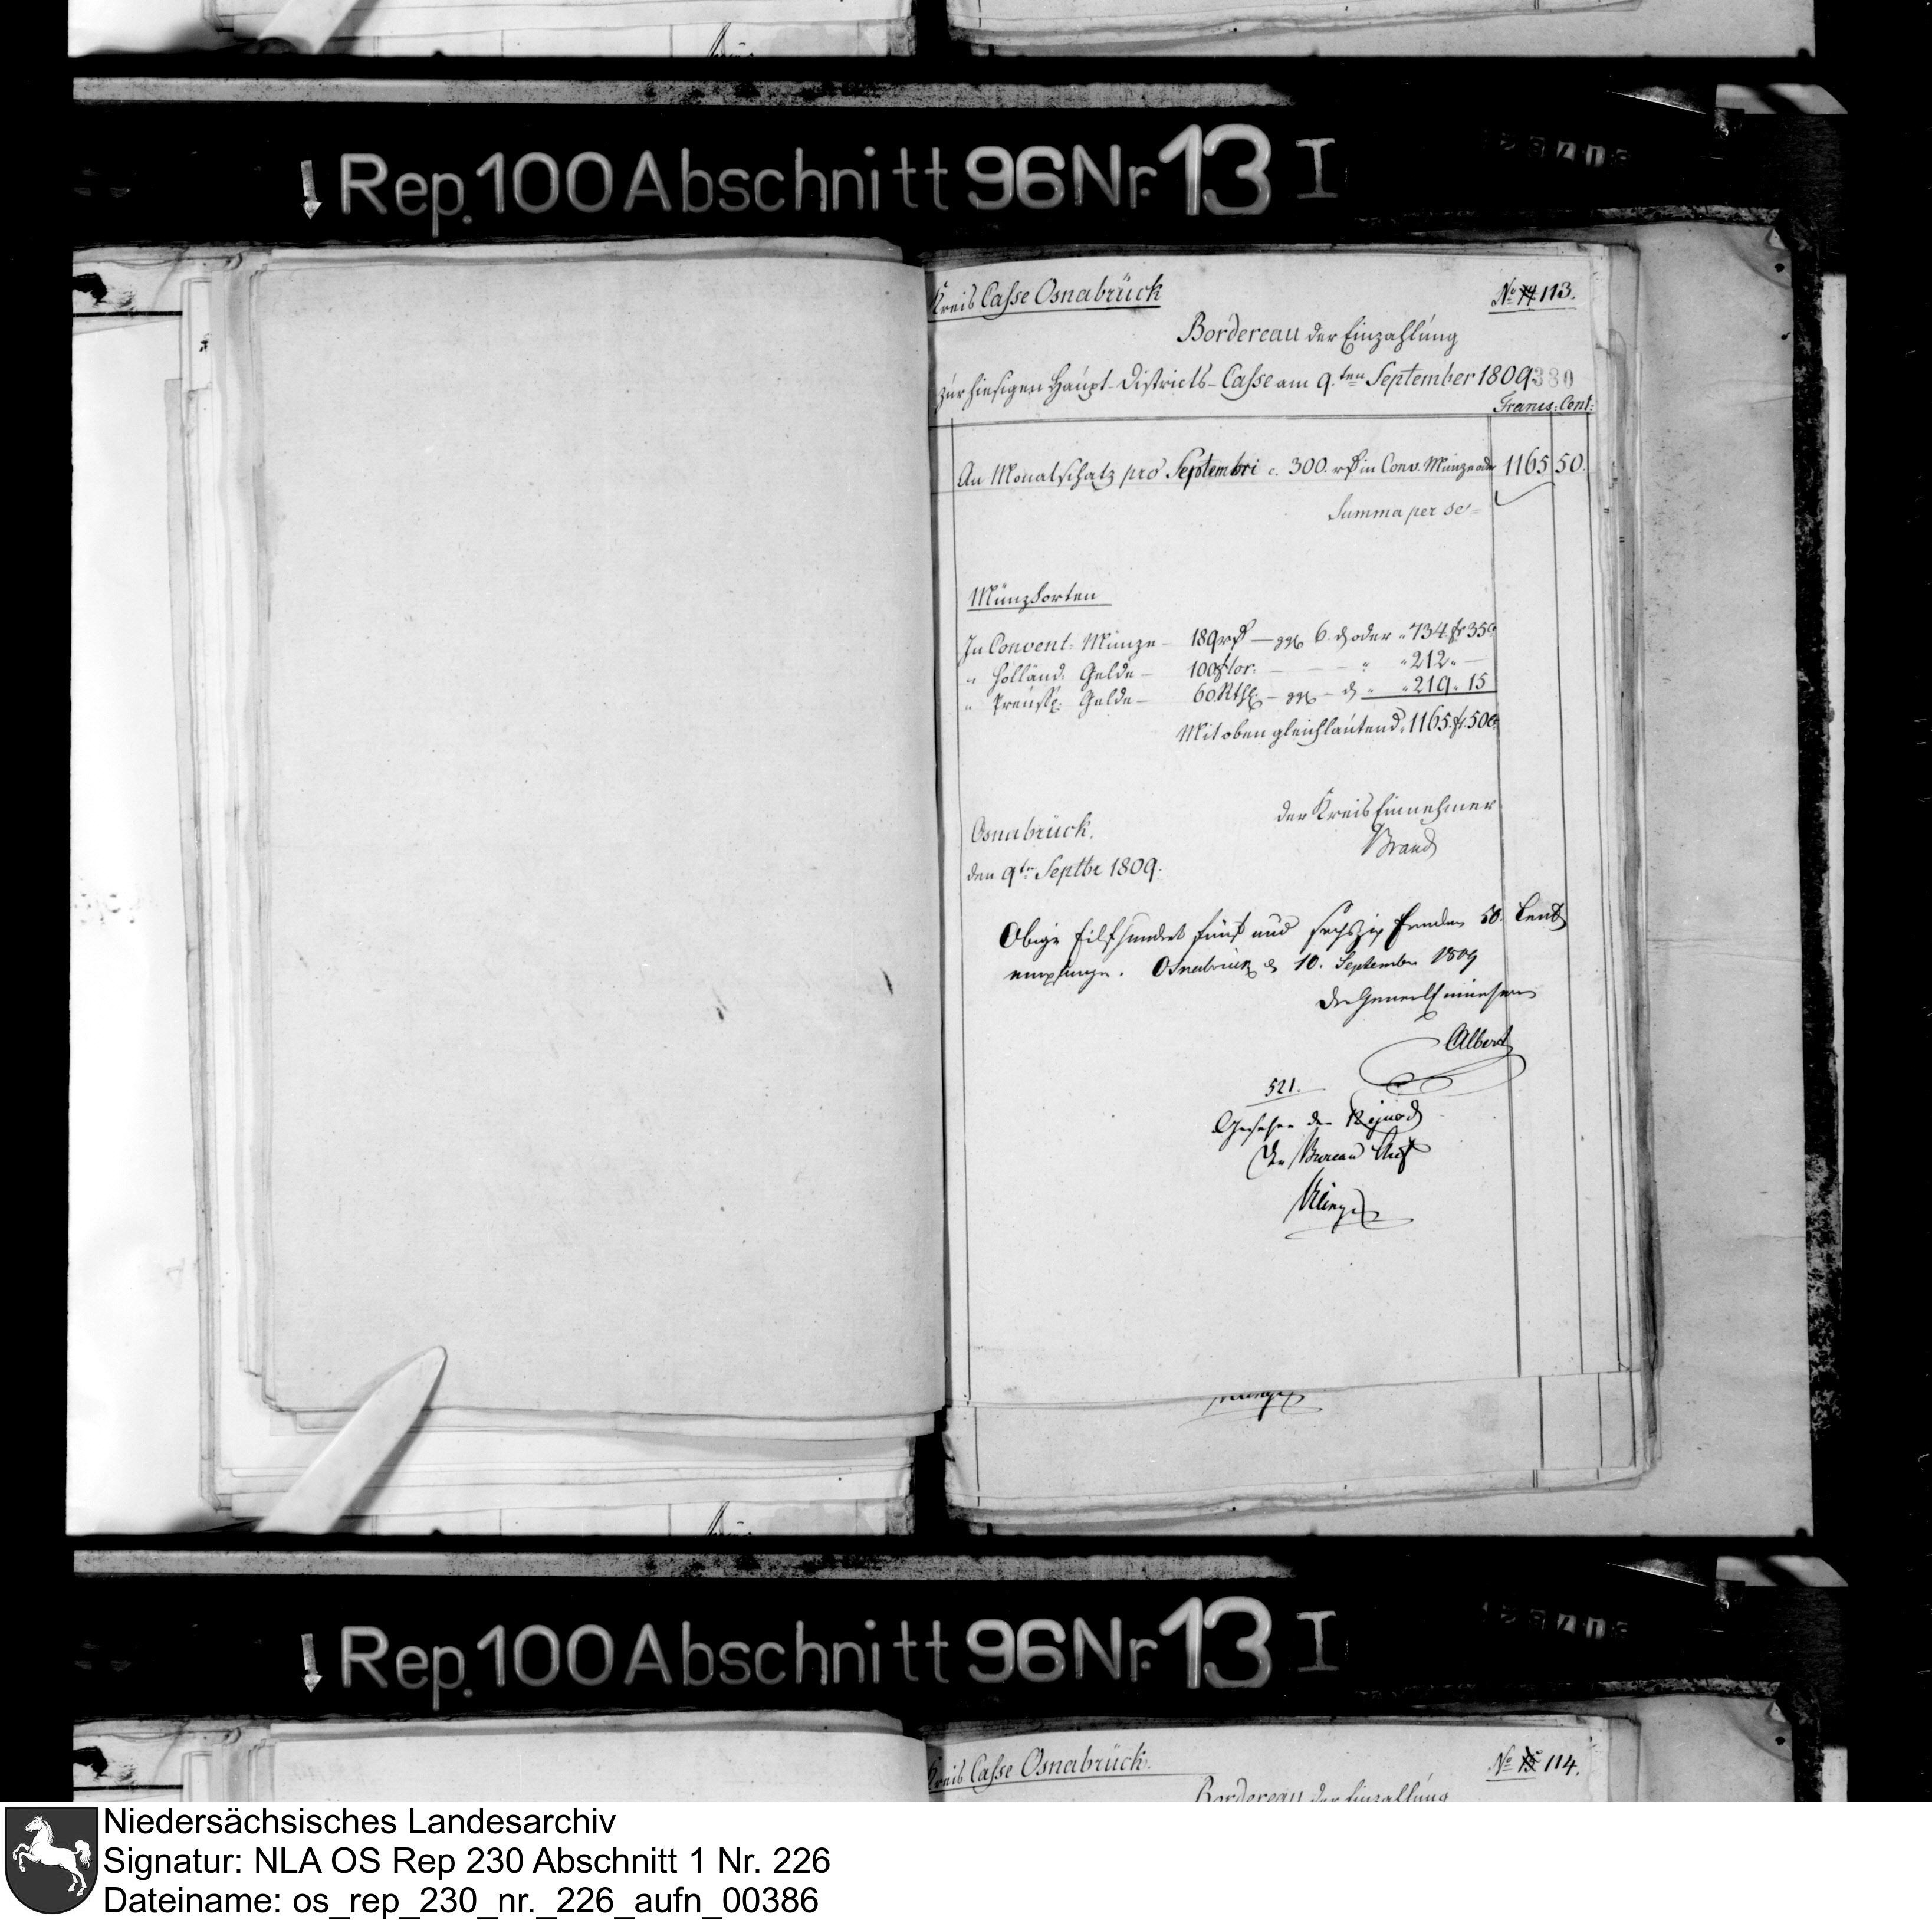 Rep. 100 Abschnitt 96 Nr. 13 I
Kreis Casse Osnabrück
No 14 113.
Bordereau der Einzahlung
zur hiesigen Haupt-Districts-Casse am 9.ten September 1809
380
Francs. Cent:
An Monatschatz pro Septembri c. 300. rß in Conv. Münze oder 1165 50.
Summa per se
Münzsorten
In Convent: Münze - 189 rß — ggl 6. d oder " 734. fr 35 C
" Holländ: Gelde - 100 flor. - - - " " 212 " —
" Preuss: Gelde - 60 Rthl. - ggl - d " " 219 " 15
Mit oben gleichlautend. 1165. fr. 50 C
der Kreis Einnehmer
Brand
Osnabrück.
den 9ten Septbr 1809.
Obige Eilfhundert fünf und sechszig Franken 50. Cent
empfangen. Osnabrück d 10. September 1809
Der General Einnehmer
Albert
521.
Gesehen der
Der Bureau Chef
Klinge
Rep. 100 Abschnitt 96 Nr. 13 I
Kreis Casse Osnabrück.
No 15 114.
Bordereau der Einzahlung
Niedersächsisches Landesarchiv
Signatur: NLA OS Rep 230 Abschnitt 1 Nr. 226
Dateiname: os_rep_230_nr._226_aufn_00386